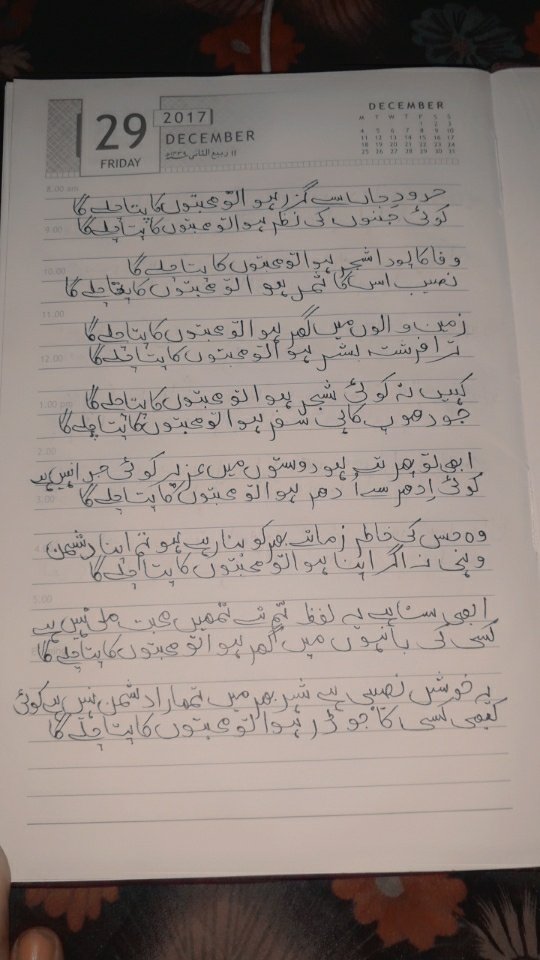 29
FRIDAY
2017
DECEMBER
۱۱ ربیع الثانی ۱۴۳۹ھ
DECEMBER
M T W T F S S
1 2 3
4 5 6 7 8 9 10
11 12 13 14 15 16 17
18 19 20 21 22 23 24
25 26 27 28 29 30 31
8.00 am
حدودِ جاں سے گزر ہوا تو محبتوں کا پتا چلے گا
کوئی جنوں کی نظر ہوا تو محبتوں کا پتا چلے گا
9.00
10.00
وفا کا پودا شجر ہوا تو محبتوں کا پتا چلے گا
نصیب اس کا ثمر ہوا تو محبتوں کا پتا چلے گا
11.00
زمین والوں میں گھر ہوا تو محبتوں کا پتا چلے گا
ترا فرشتہ بشر ہوا تو محبتوں کا پتا چلے گا
12.00
کہیں نہ کوئی شجر ہوا تو محبتوں کا پتا چلے گا
1.00 pm
جو دھوپ کا ہی سفر ہوا تو محبتوں کا پتا چلے گا
2.00
ابھی تو پھرتے ہو دوستوں میں عزیز کوئی جدا نہیں ہے
کوئی اِدھر سے اُدھر ہوا تو محبتوں کا پتا چلے گا
3.00
وہ جس کی خاطر زمانے بھر کو بنا رہے ہو تم اپنا دشمن
وہی نہ اگر اپنا ہوا تو محبتوں کا پتا چلے گا
5.00
ابھی سنا ہے یہ لفظ تم نے تمھیں محبت ملی نہیں ہے
کسی کی بانہوں میں گھر ہوا تو محبتوں کا پتا چلے گا
یہ خوش نصیبی ہے شہر بھر میں تمھارا دشمن نہیں ہے کوئی
کبھی کسی کا جو ڈر ہوا تو محبتوں کا پتا چلے گا